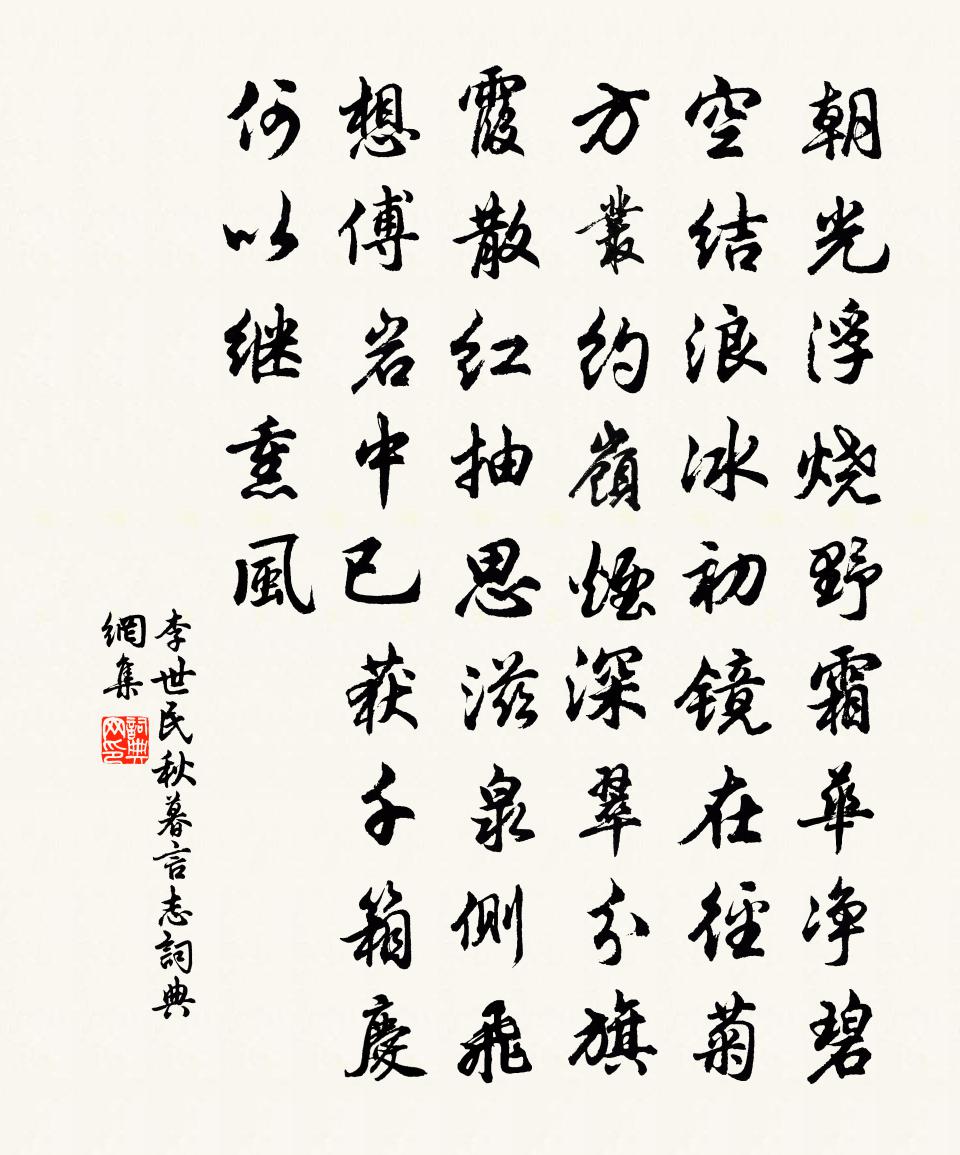 朝光浮烧野霜華净碧
空结浪冰初镜在徑菊
方叢约嶺煙深翠分旗
霞散红抽思滋泉侧飛
想傅岩中已获千箱慶
何以继熏風
李世民秋暮言志詞典
網集
詞典网印